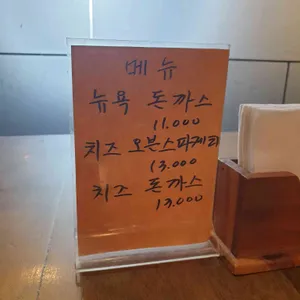 메뉴
뉴욕 돈까스
11.000
치즈 오븐스파게티
13.000
치즈 돈까스
13.000